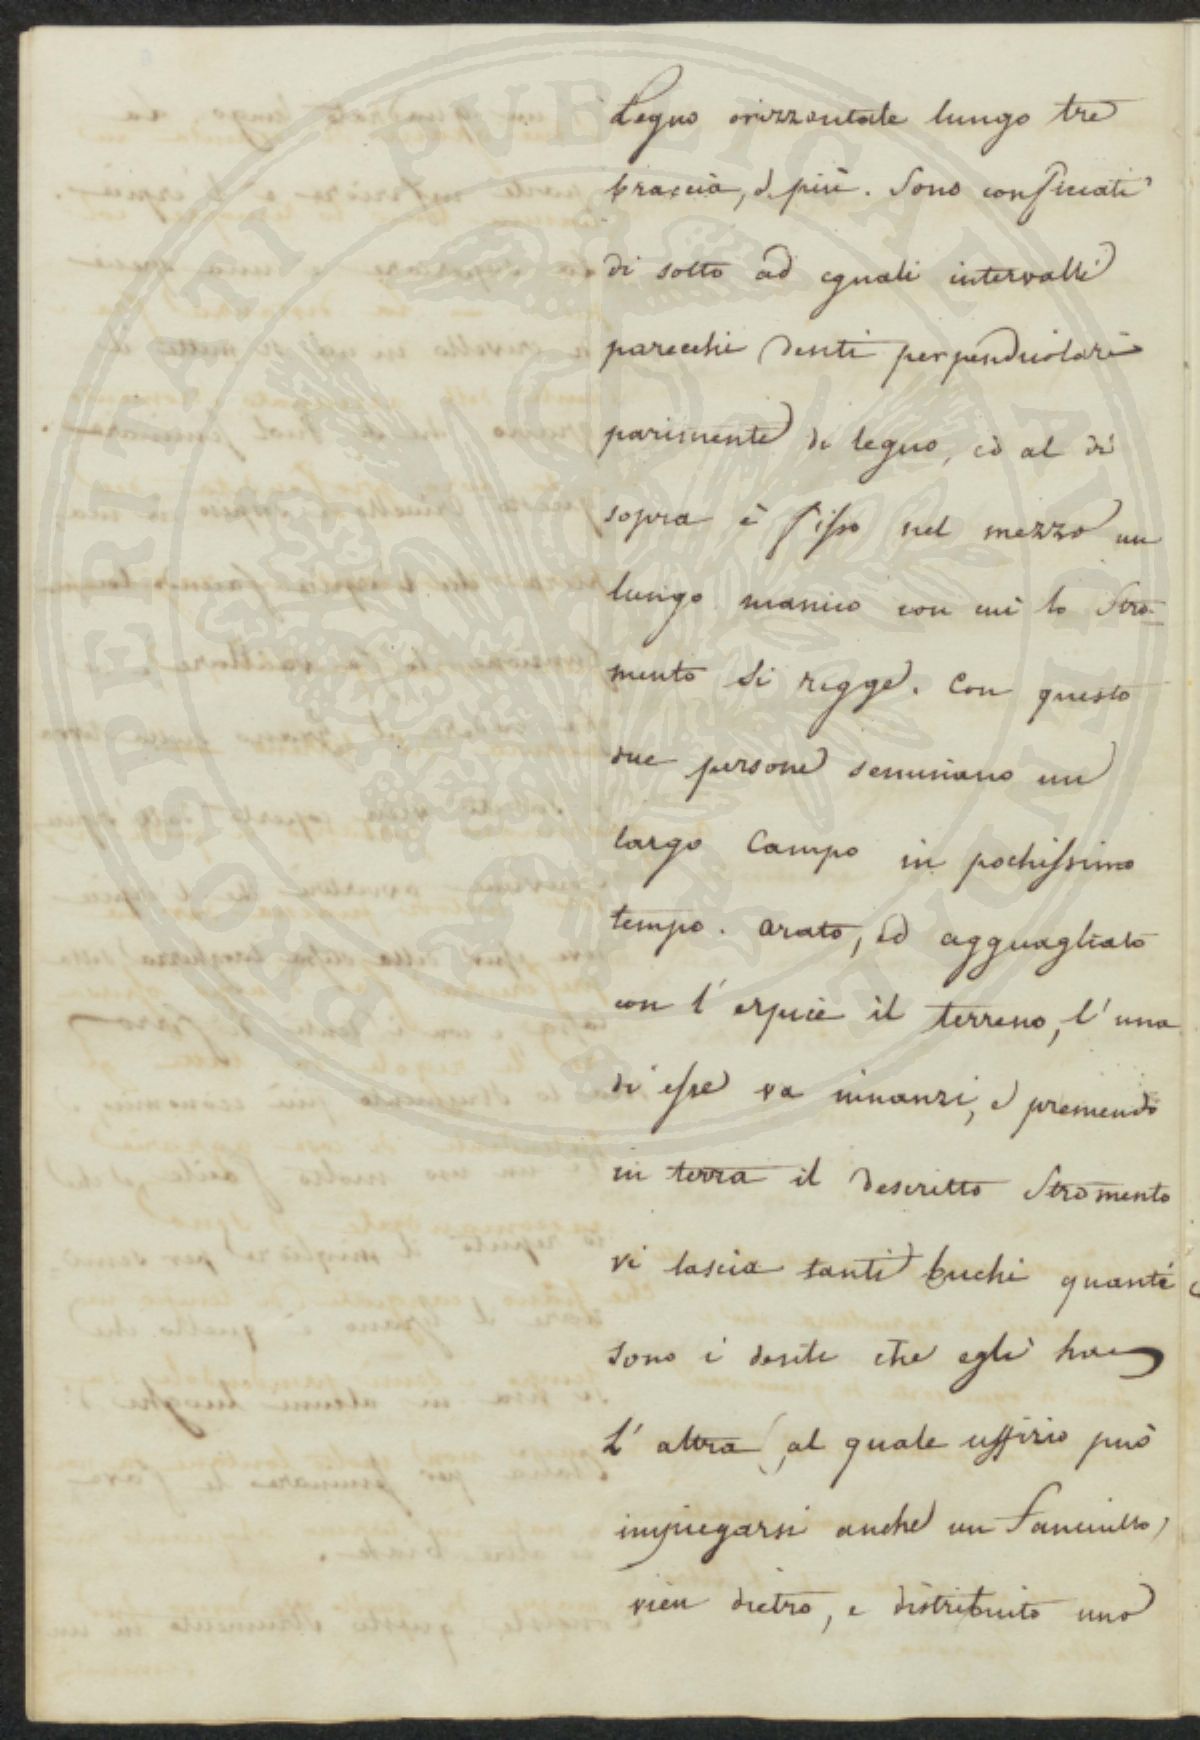 Legno orizzontale lungo tre
braccia, e più. Sono conficcati
di sotto ad eguali intervalli
parecchi denti perpendicolari
parimente di legno, ed al di
sopra è fisso nel mezzo un
lungo manico con cui lo Stro-
mento si regge. Con questo
due persone seminano un
largo Campo in pochissimo
tempo. Arato, ed agguagliato
con l'erpice il terreno, l'una
di esse va innanzi, e premendo
in terra il descritto Stromento
vi lascia tanti buchi quanti
sono i denti che egli ha
L'altra, al quale uffizio può
impiegarsi anche un fanciullo,
vien dietro, e distribuito uno
PROSPERITATI PVBLICAE AVGENDAE